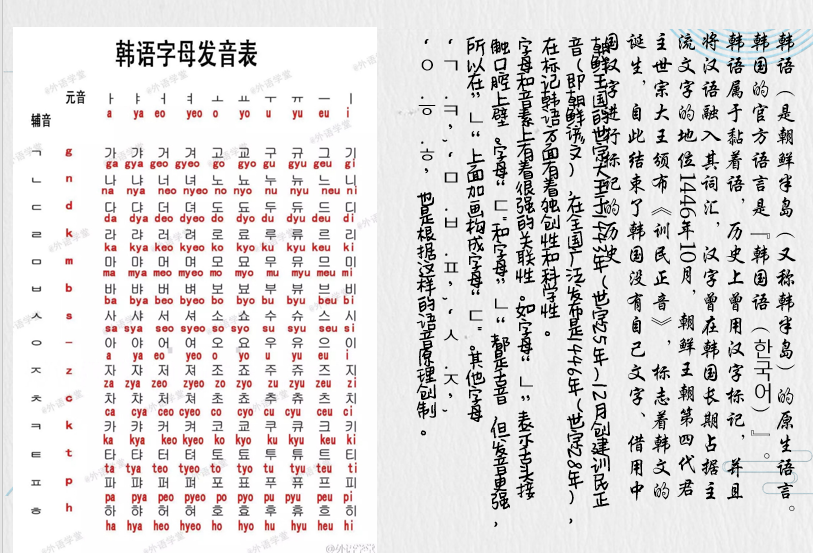 韩语字母发音表
元音 ㅏ ㅑ ㅓ ㅕ ㅗ ㅛ ㅜ ㅠ ㅡ ㅣ
a ya eo yeo o yo u yu eu i
辅音
ㄱ g 가 갸 거 겨 고 교 구 규 그 기
ga gya geo gyeo go gyo gu gyu geu gi
ㄴ n 나 냐 너 녀 노 뇨 누 뉴 느 니
na nya neo nyeo no nyo nu nyu neu ni
ㄷ d 다 댜 더 뎌 도 됴 두 듀 드 디
da dya deo dyeo do dyo du dyu deu di
ㄹ k 라 랴 러 려 로 료 루 류 르 리
ka kya keo kyeo ko kyo ku kyu keu ki
ㅁ m 마 먀 머 며 모 묘 무 뮤 므 미
ma mya meo myeo mo myo mu myu meu mi
ㅂ b 바 뱌 버 벼 보 뵤 부 뷰 브 비
ba bya beo byeo bo byo bu byu beu bi
ㅅ s 사 샤 서 셔 소 쇼 수 슈 스 시
sa sya seo syeo so syo su syu seu si
ㅇ – 아 야 어 여 오 요 우 유 으 이
a ya eo yeo o yo u yu eu i
ㅈ z 자 쟈 저 져 조 죠 주 쥬 즈 지
za zya zeo zyeo zo zyo zu zyu zeu zi
ㅊ c 차 챠 처 쳐 초 쵸 추 츄 츠 치
ca cya ceo cyeo co cyo cu cyu ceu ci
ㅋ k 카 캬 커 켜 코 쿄 쿠 큐 크 키
ka kya keo kyeo ko kyo ku kyu keu ki
ㅌ t 타 탸 터 텨 토 툐 투 튜 트 티
ta tya teo tyeo to tyo tu tyu teu ti
ㅍ p 파 퍄 퍼 펴 포 표 푸 퓨 프 피
pa pya peo pyeo po pyo pu pyu peu pi
ㅎ h 하 햐 허 혀 호 효 후 휴 흐 히
ha hya heo hyeo ho hyo hu hyu heu hi
@外语学堂
韩语（是朝鲜半岛（又称韩半岛）的原生语言。
韩国的官方语言是『韩国语（한국어）』。
韩语属于黏着语，历史上曾用汉字标记，并且
将汉语融入其词汇，汉字曾在韩国长期占据主
流文字的地位1446年10月，朝鲜王朝第四代君
主世宗大王颁布《训民正音》，标志着韩文的
诞生，自此结束了韩国没有自己文字、借用中
国汉字进行标记的历史
朝鲜王国的世宗大王于1443年（世宗25年）12月创建训民正
音（即朝鲜谚文），在全国广泛发布是1446年（世宗28年），
在标记韩语方面有着独创性和科学性。
字母和音素上有着很强的关联性。如字母“ㄴ”表示舌头接
触口腔上壁。字母“ㄷ”和字母“ㄴ”都是舌音，但发音更强，
所以在“ㄴ”上面加画构成字母“ㄷ”。其他字母
‘ㄱ.ㅋ’，‘ㅁ.ㅂ.ㅍ’，‘ㅅ.ㅈ’，
‘ㅇ.ㆆ.ㅎ’，也是根据这样的语音原理创制。